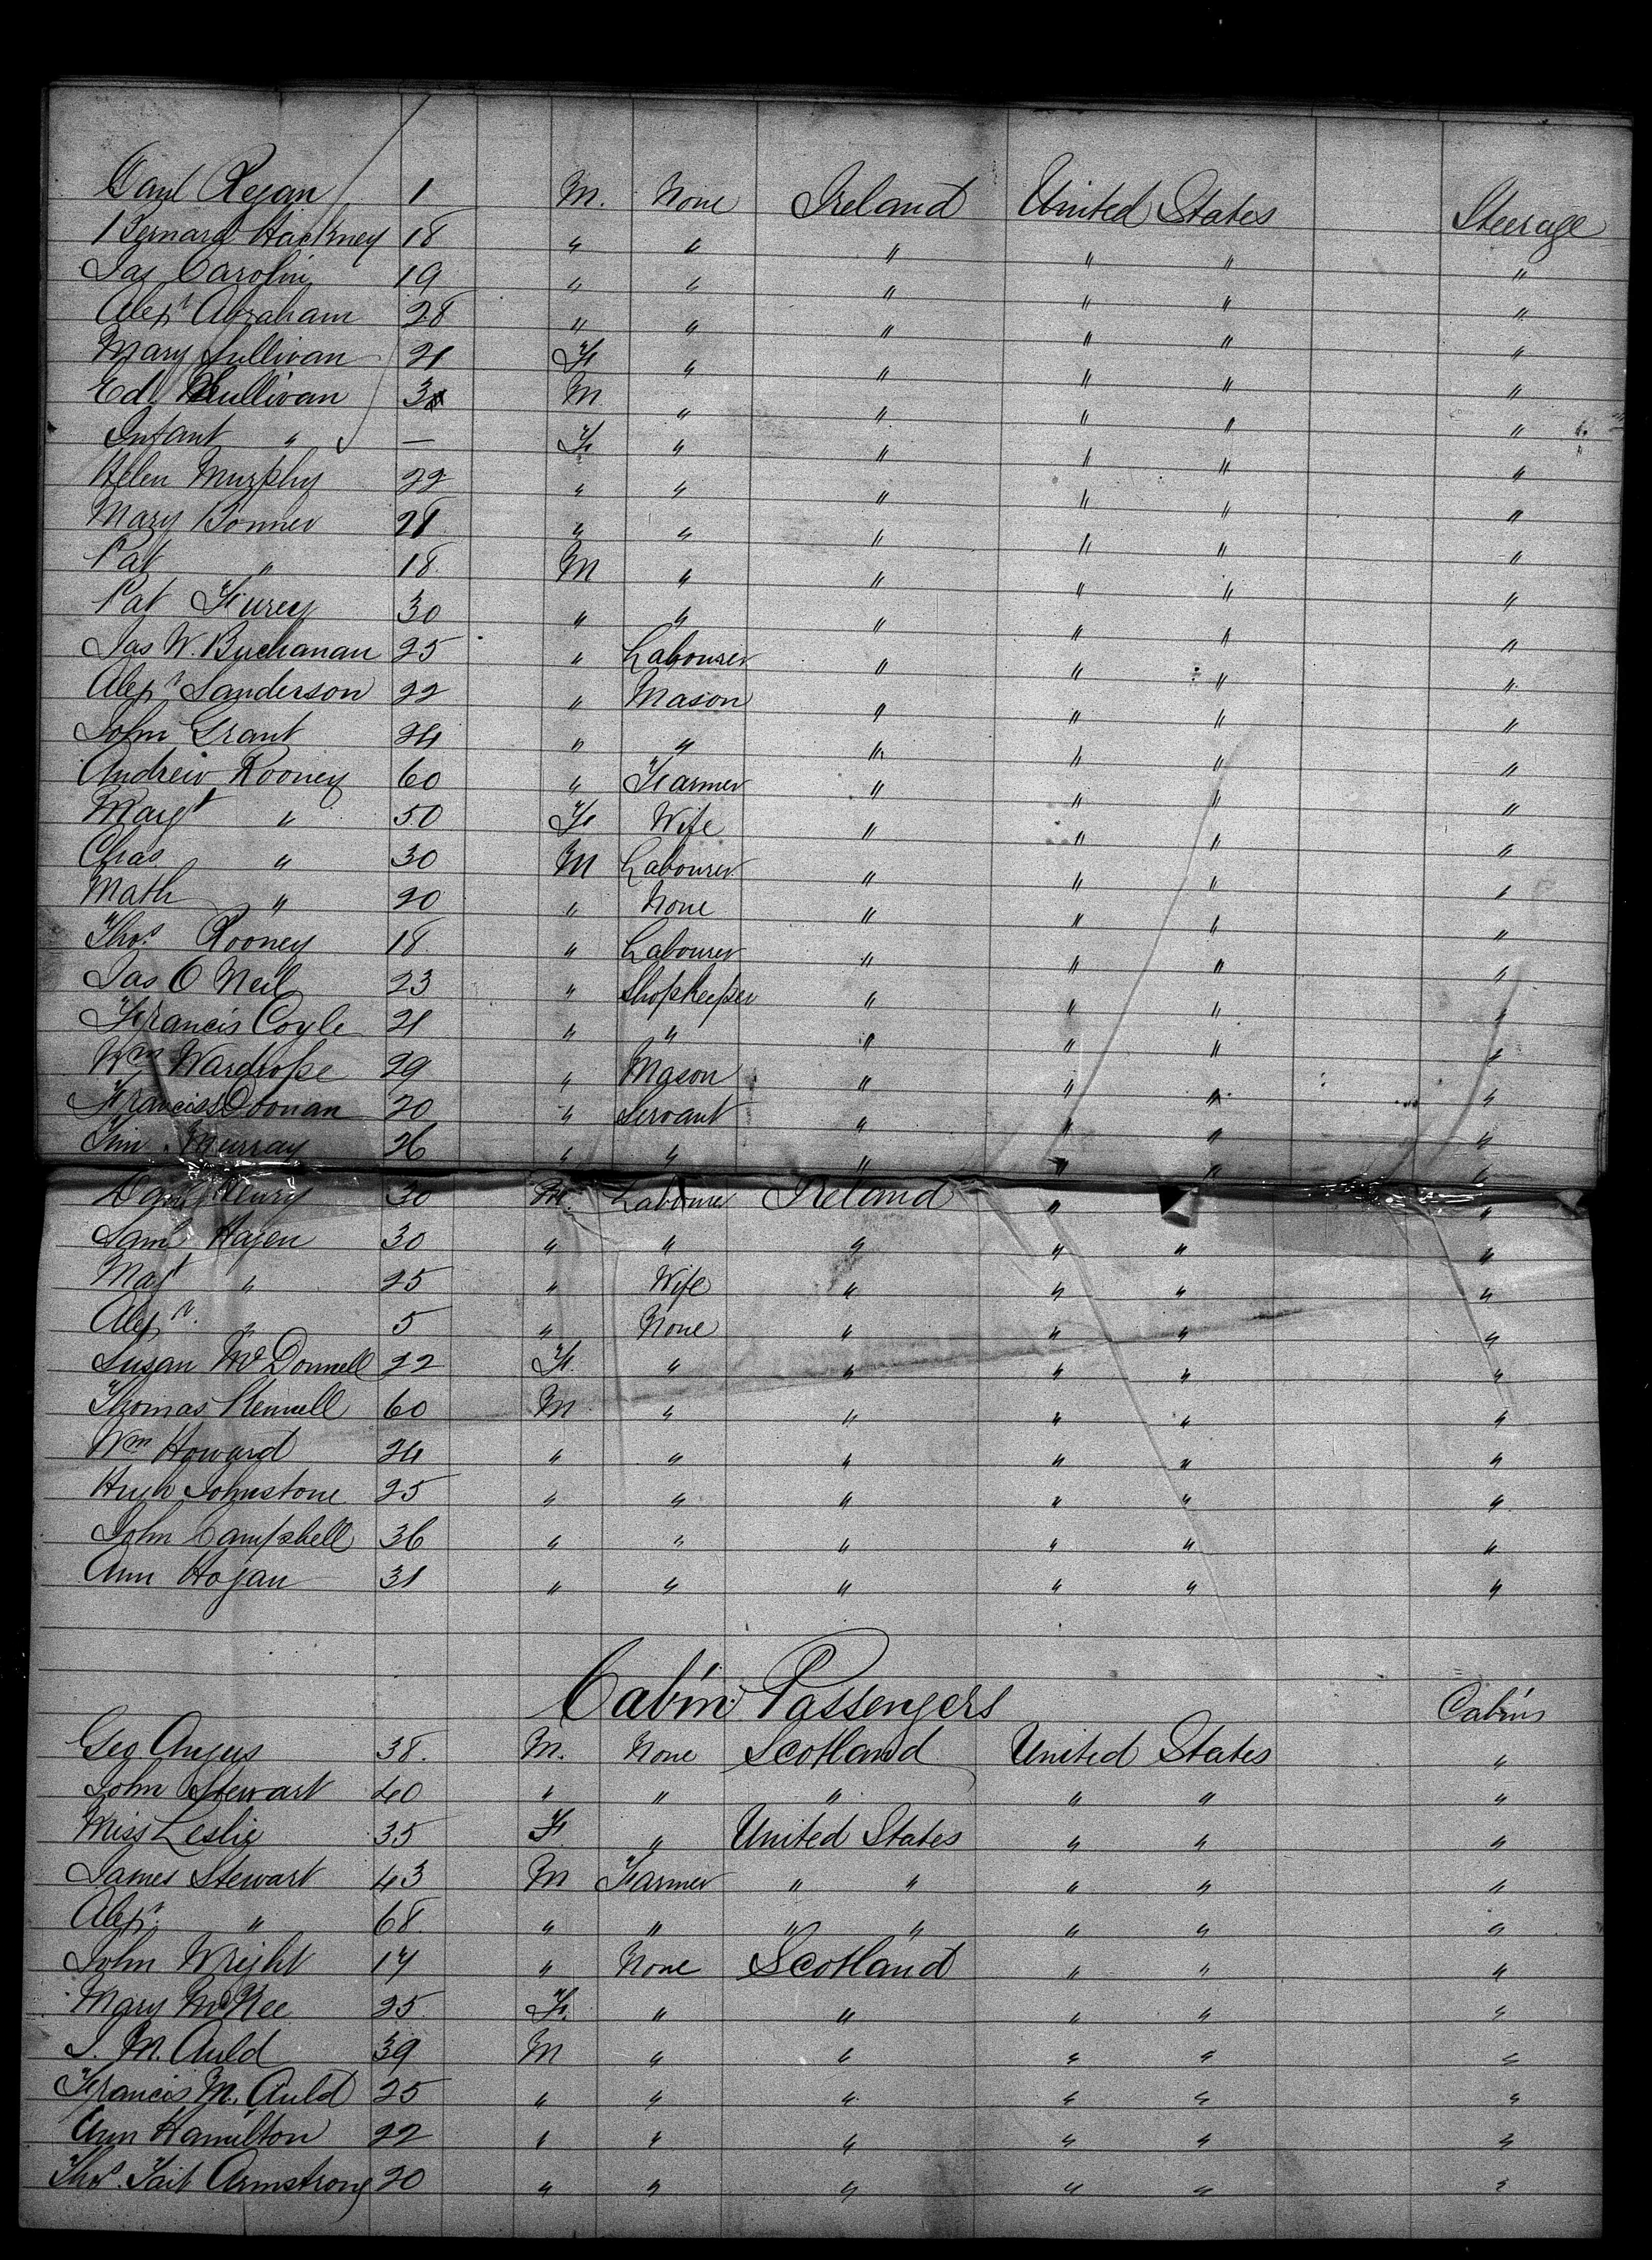 Danl Regan 1 M. None Ireland United States Steerage
Bernard Hackney 18 " " " " " "
Jas Carolin 19 " " " " " "
Alexr Abraham 28 " " " " " "
Mary Sullivan 21 F " " " " "
Ed. Sullivan 3 M " " " " "
Infant " — F " " " " "
Helen Murphy 22 " " " " " "
Mary Bonner 28 " " " " " "
Pat " 18 M " " " " "
Pat Furey 30 " " " " " "
Jas W. Buchanan 25 " Labourer " " " "
Alexr Sanderson 22 " Mason " " " "
John Grant 24 " " " " " "
Andrew Rooney 60 " Farmer " " " "
Margt " 50 F Wife " " " "
Chas " 30 M Labourer " " " "
Math " 20 " None " " " "
Thos. Rooney 18 " Labourer " " " "
Jas O Neil 23 " Shopkeeper " " " "
Francis Coyle 21 " " " " " "
Wm Wardrope 29 " Mason " " " "
Francis Doonan 20 " Servant " " " "
Tim Murray 26 " " " " " "
Henry 30 M. Labourer Ireland " "
Saml Hagen 30 " " " " " "
Magt " 25 " Wife " " " "
Alexr. " 5 " None " " " "
Susan McDonnell 22 F. " " " " "
Thomas 60 M " " " " "
Wm Howard 24 " " " " " "
Hugh Johnstone 25 " " " " " "
John Campbell 36 " " " " " "
Ann Hogan 31 " " " " " "
Cabin Passengers Cabin
Geo Angus 38. M. None Scotland United States "
John Stewart 40 " " " " " "
Miss Leslie 35 F " United States " " "
James Stewart 43 M Farmer " " " " "
Alexr. " 68 " " " " " " "
John Wright 14 " None Scotland " " "
Mary McKee 25 F. " " " " "
J. M. Auld 39 M " " " " "
Francis M. Auld 25 " " " " " "
Ann Hamilton 22 " " " " " "
Thos. Tait Armstrong 20 " " " " " "